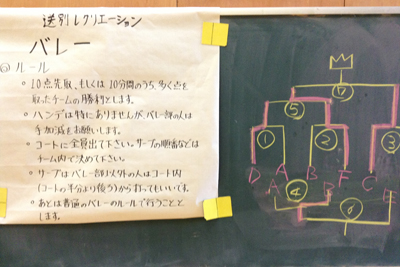 送別レクリエーション
バレー
◎ルール
○ 10点先取、もしくは10分間のうち、多く点を
取ったチームの勝利とします。
○ ハンデは特にありませんが、バレー部の人は
手加減をお願いします。
○ コートに全員出て下さい。サーブの順番などは
チーム内で決めて下さい。
○ サーブは バレー部以外の人はコート内
(コートの半分より後ろ)から打ってもいいです。
○ あとは普通のバレーのルールで行うことと
します。
⑦
⑤
① ② ③
D A B F C
A ④ B ⑥ E